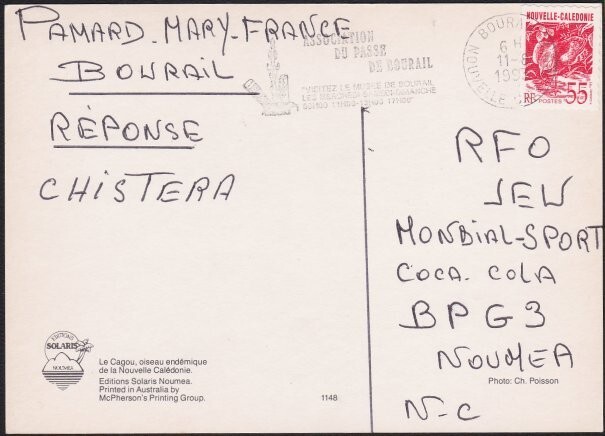 PAMARD. MARY-FRANCE
BOURAIL
RÉPONSE
CHISTERA
ASSOCIATION
DU PASSE
DE BOURAIL
"VISITEZ LE MUSEE DE BOURAIL
LES MERCREDI
DIMANCHE
8H00 11H00-13H00 17H00"
BOURAIL
6 H
11-
199
NOUVELLE-CALEDONIE
RF POSTES 55
RFO
JEU
MONDIAL-SPORT
COCA. COLA
BP G3
NOUMEA
N-C
EDITIONS
SOLARIS
NOUMEA
Le Cagou, oiseau endémique
de la Nouvelle Calédonie.
Editions Solaris Noumea.
Printed in Australia by
McPherson's Printing Group.
1148
Photo: Ch. Poisson